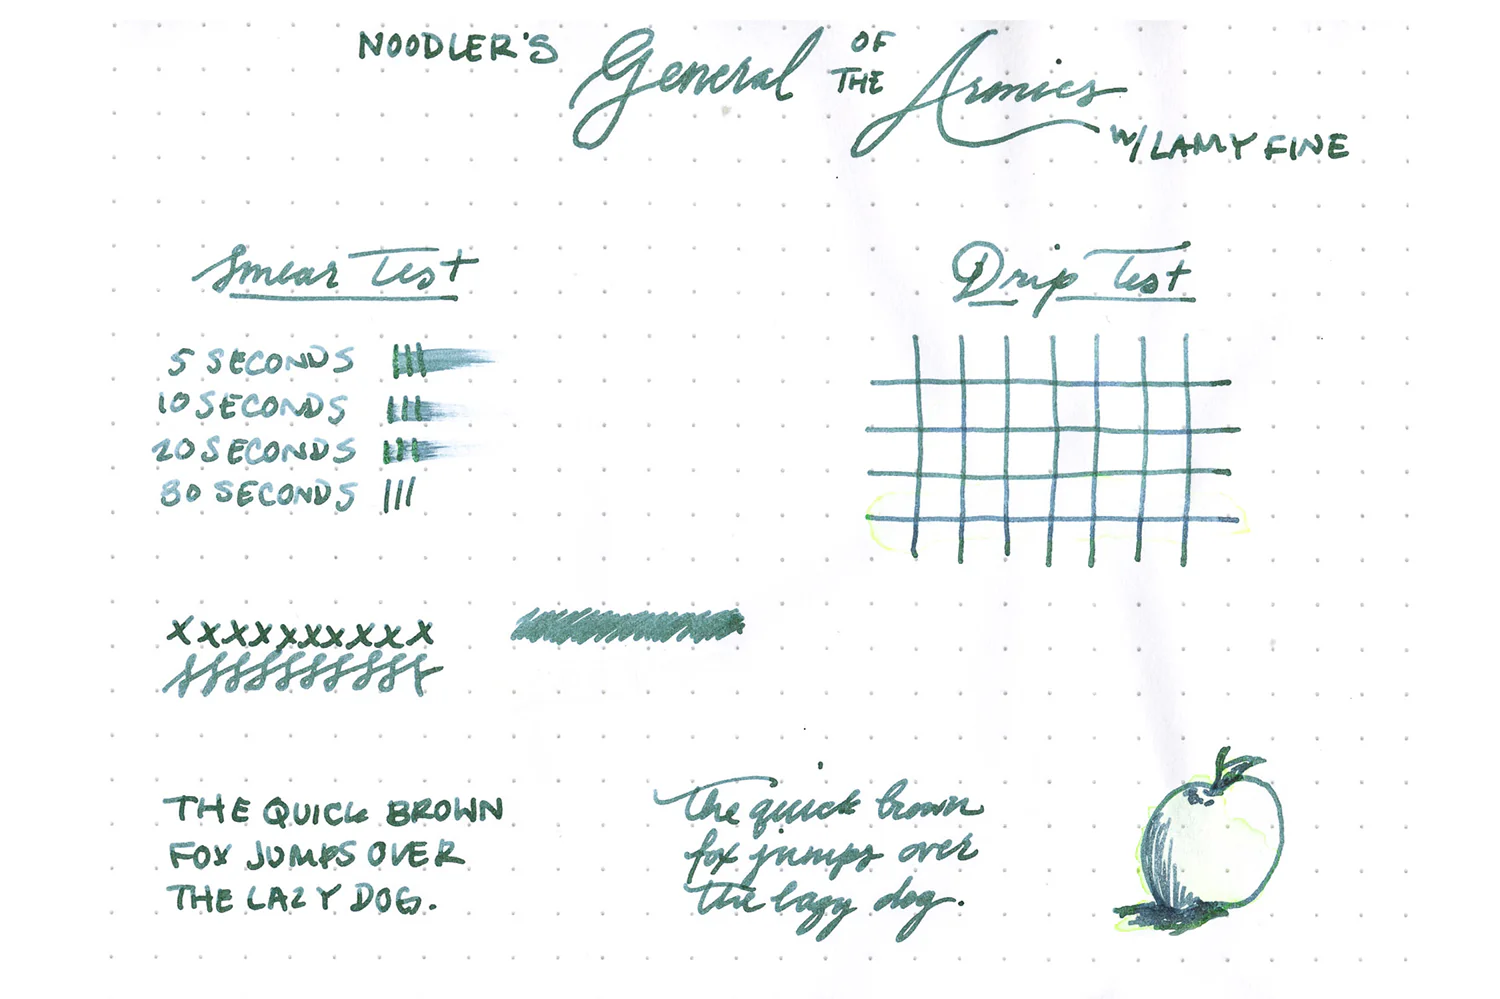 NOODLER'S General OF THE Armies
w/ LAMY FINE
Smear Test
5 SECONDS
10 SECONDS
20 SECONDS
30 SECONDS
Drip Test
xxxxxxxxxxx
THE QUICK BROWN
FOX JUMPS OVER
THE LAZY DOG.
The quick brown
fox jumps over
the lazy dog.